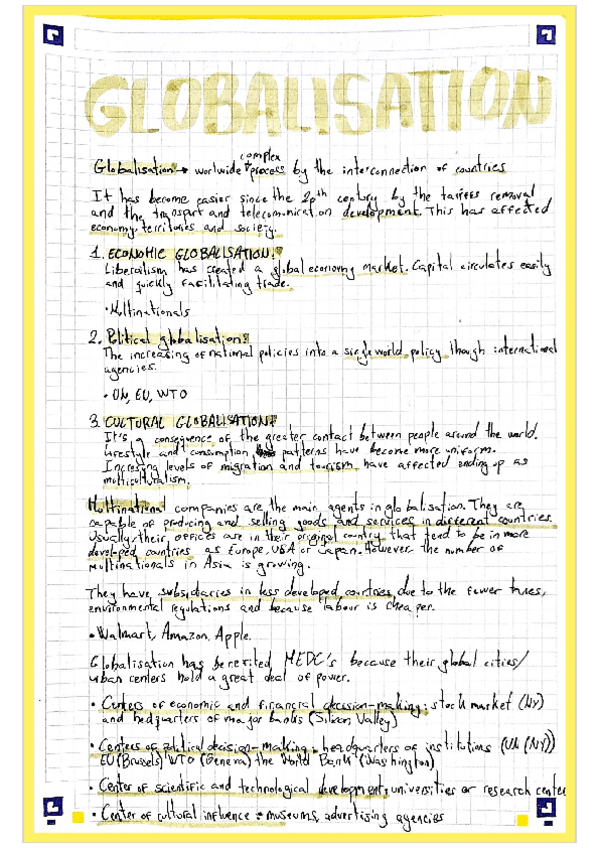 GLOBALISATION
Globalisation → worlwide complex process by the interconnection of countries
It has become easier since the 20th century by the tariffs removal
and the transport and telecomunication development. This has affected
economy, territories and society.
1. ECONOMIC GLOBALISATION:
Liberalism has created a global economy market. Capital circulates easily
and quickly facilitating trade.
• Multinationals
2. Political globalisation:
The increasing of national policies into a single world policy though international
agencies.
• UN, EU, WTO
3. CULTURAL GLOBALISATION:
It's a consequence of the greater contact between people around the world.
Lifestyle and consumption patterns have become more uniform.
Incresing levels of migration and tourism have affected ending up as
multiculturalism.
Multinational companies are the main agents in globalisation. They are
capable of producing and selling goods and services in different countries.
Usually, their offices are in their original country that tend to be in more
developed countries as Europe, USA or Japan. However the number of
multinationals in Asia is growing.
They have subsidaries in less developed countries due to the fewer taxes,
environmental regulations and because labour is cheaper.
• Walmart, Amazon, Apple.
Globalisation has benefited MEDC's because their global cities/
urban centers hold a great deal of power.
• Centers of economic and financial decision-making: stock market (NY)
and hedquarters of major banks (Silicon Valley)
• Centers of political decision-making: headquarters of institutions (UN (NY))
EU (Brussels) WTO (Geneva) the World Bank (Washington)
• Center of scientific and technological development: universities or research center
• Center of cultural influence: museums, advertising agencies